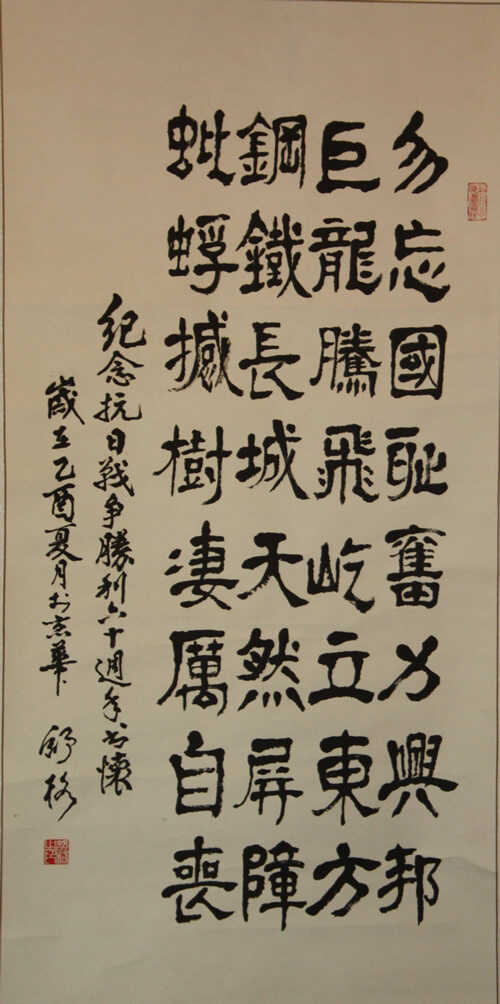 勿忘國耻奮力興邦
巨龍騰飛屹立東方
鋼鐵長城天然屏障
蚍蜉撼樹淒厲自喪
纪念抗日戰争勝利六十週年書懷
歲在乙酉夏月於京華 舒格